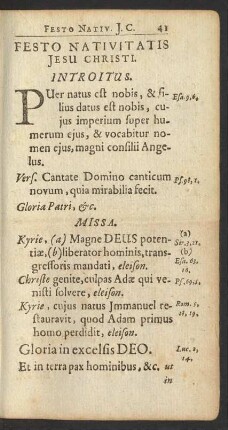 FESTO NATIV. J. C. 41
FESTO NATIVITATIS
JESU CHRISTI.
INTROITUS.
PUer natus est nobis, & fi- Esa. 9, 6,
lius datus est nobis, cu-
jus imperium super hu-
merum ejus, & vocabitur no-
men ejus, magni consilii Ange-
lus.
Vers. Cantate Domino canticum Ps. 98, 1.
novum, quia mirabilia fecit.
Gloria Patri, &c.
MISSA.
Kyrie, (a) Magne DEUS poten- (a)
tiæ, (b) liberator hominis, trans- (b)
gressoris mandati, eleison.
Christe genite, culpas Adæ qui ve-
nisti solvere, eleison.
Kyrie, cujus natus Jmmanuel re- Rom. 5.
stauravit, quod Adam primus
homo perdidit, eleison.
Gloria in excelsis DEO. Luc. 2,
Et in terra pax hominibus, &c. ut 14.
in